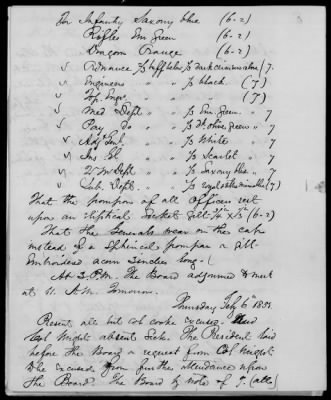 For Infantry Saxony blue (6-2)
Rifles Em. Green (6-2)
Dragoon Orange (6-2)
√ Ordnance ½ buff below ½ dark crimson above (7.
√ Engineers " " ½ black (7)
√ Top. Engrs " " (7)
√ Med Dept. " " ½ Em. Green " 7
√ Pay Do " " ½ dk. olive green " 7
√ Adj. Genl. " " ½ White " 7
√ Ins. Gl. " " ½ Scarlet " 7
√ Q. M. Dept. " " ½ Saxony blue " 7
√ Sub. Dept. " " ½ (7)
That the pompon of all Officers rest
upon an eliptical socket gilt (6-2)
That the Generals wear on the cap
instead of a Spherical pompon a gilt
Embroidered acorn inches long - (
At 3. P.M. The Board adjourned to meet
at 11. A.M. Tomorrow.
Thursday Feby 6th 1851.
Present all but Col Cooke excused. And
Col Wright absent Sick. The President laid
before the Board a request from Col Wright
to be excused from further attendance upon
the Board. The Board by vote of 7. (all)